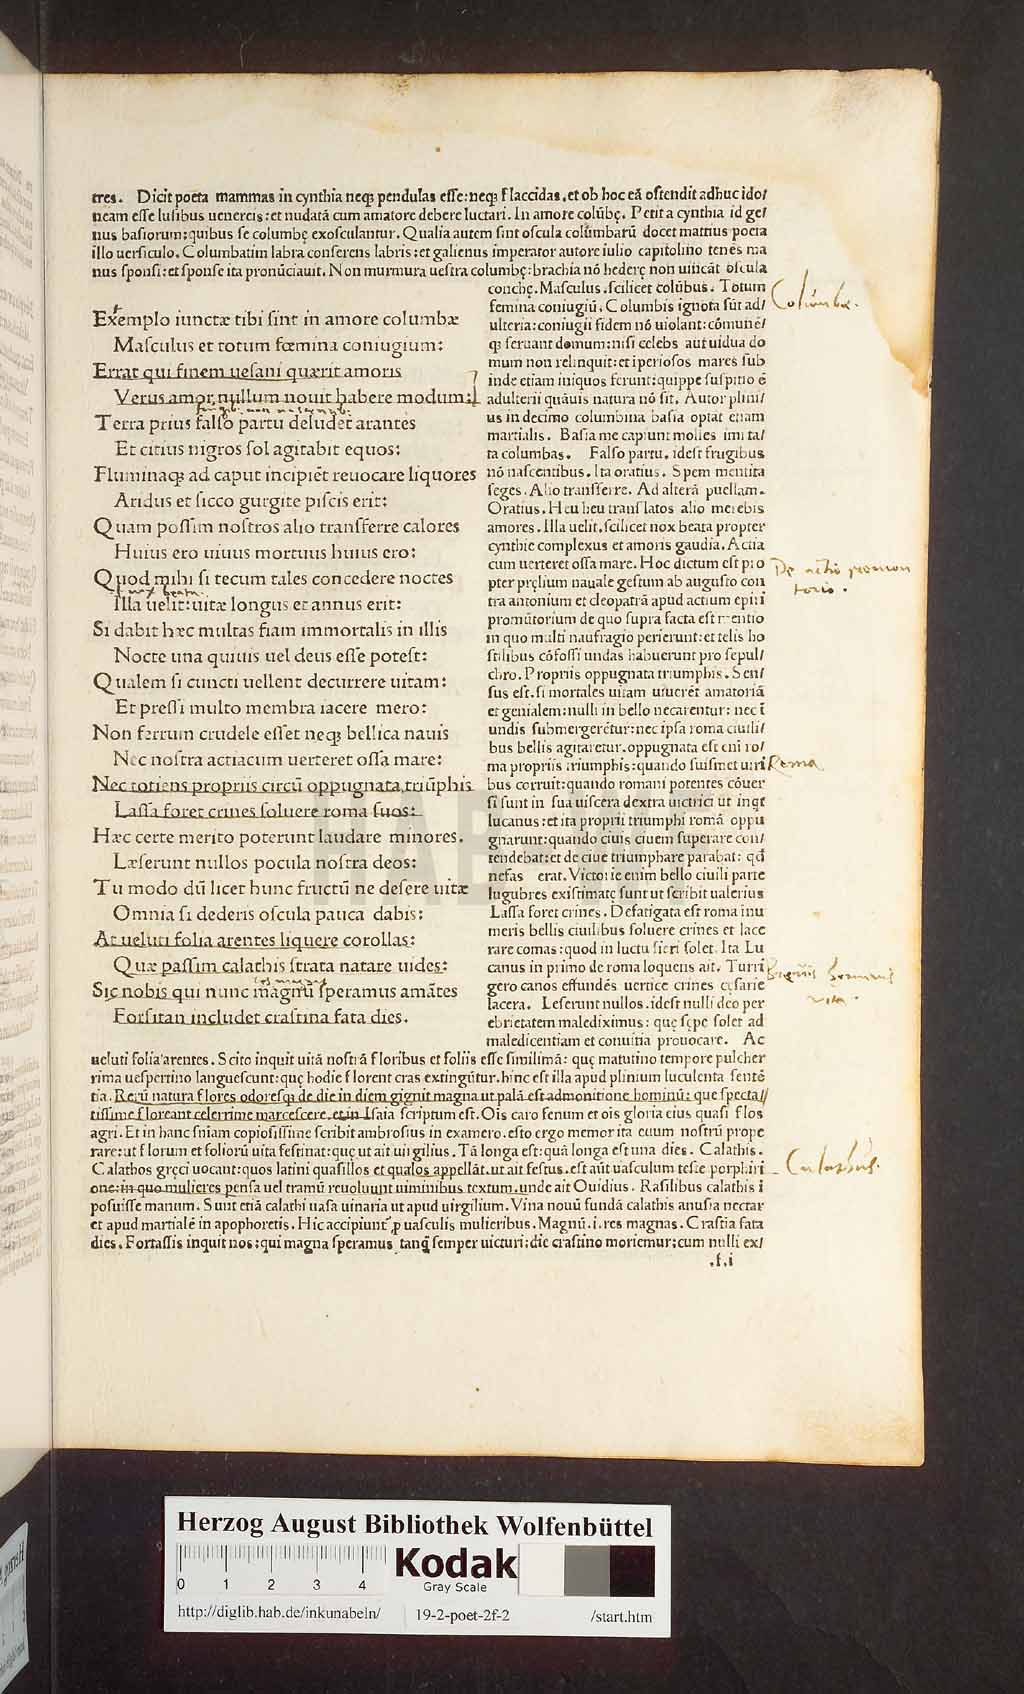 tres. Dicit poeta mammas in cynthia neqꝫ pendulas esse:neqꝫ flaccidas.et ob hoc eā ostendit adhuc ido/
neam esse lusibus uenereis:et nudatā cum amatore debere luctari. In amore colūbę. Petit a cynthia id ge/
nus basiorum:quibus se columbę exosculantur. Qualia autem sint oscula columbarū docet mattius poeta
illo uersiculo. Columbatim labra conserens labris:et galienus imperator autore iulio capitolino tenēs ma
nus sponsi:et sponse ita pronūciauit. Non murmura uestra columbę:brachia nō hederę non uincāt oscula
Exemplo iunctæ tibi sint in amore columbæ
Masculus et totum fœmina coniugium:
Errat qui finem uesani quærit amoris
Verus amor nullum nouit habere modum:
frugib. non nascentib.
Terra prius falso partu deludet arantes
Et citius nigros sol agitabit equos:
Fluminaqꝫ ad caput incipiēt reuocare liquores
Aridus et sicco gurgite piscis erit:
Quam possim nostros alio transferre calores
Huius ero uiuus mortuus huius ero:
Quod mihi si tecum tales concedere noctes
s. nox beata.
Illa uelit:uitæ longus et annus erit:
Si dabit hæc multas fiam immortalis in illis
Nocte una quiuis uel deus esse potest:
Qualem si cuncti uellent decurrere uitam:
Et pressi multo membra iacere mero:
Non ferrum crudele esset neqꝫ bellica nauis
Nec nostra actiacum uerteret ossa mare:
Nec totiens propriis circū oppugnata triūphis
Lassa foret crines soluere roma suos:
Hæc certe merito poterunt laudare minores.
Læserunt nullos pocula nostra deos:
Tu modo dū licet hunc fructū ne desere uitæ
Omnia si dederis oscula pauca dabis:
Ac ueluti folia arentes liquere corollas:
Quæ passim calathis strata natare uides:
res magnas
Sic nobis qui nunc magnū speramus amātes
Forsitan includet crastina fata dies.
conchę. Masculus .scilicet colūbus. Totum
femina coniugiū. Columbis ignota sūt ad/
ulteria:coniugii fidem nō uiolant:cōmunē/
qꝫ seruant domum:nisi celebs aut uidua do
mum non relinquit:et iperiosos mares sub
inde etiam iniquos ferunt:quippe suspitio ē
adulterii quāuis natura nō sit. Autor plini/
us in decimo columbina basia optat etiam
martialis. Basia me capiunt molles imita/
ta columbas. Falso partu. idest frugibus
nō nascentibus. Ita oratius. Spem mentita
seges. Alio transferre. Ad alterā puellam.
Oratius. Heu heu translatos alio merebis
amores. Illa uelit.scilicet nox beata propter
cynthie complexus et amoris gaudia. Actia
cum uerteret ossa mare. Hoc dictum est pro
pter pręlium nauale gestum ab augusto con
tra antonium et cleopatrā apud actium epiri
promūtorium de quo supra facta est mentio
in quo multi naufragio perierunt:et telis ho
stilibus cōfossi undas habuerunt pro sepul/
chro. Propriis oppugnata triumphis. Sen/
sus est.si mortales uitam uiuerēt amatoriā
et genialem:nulli in bello necarentur: nec ī
undis submergerētur:nec ipsa roma ciuili/
bus bellis agitaretur.oppugnata est eni ro/
ma propriis triumphis:quando suismet uiri
bus corruit:quando romani potentes cōuer
si sunt in sua uiscera dextra uictrici ut inqt
lucanus:et ita proprii triumphi romā oppu
gnarunt:quando ciuis ciuem superare con/
tendebat:et de ciue triumphare parabat: qd
nefas erat. Victorie enim bello ciuili parte
lugubres existimatę sunt ut scribit ualerius
Lassa foret crines. Defatigata est roma inu
meris bellis ciuilibus soluere crines et lace
rare comas:quod in luctu fieri solet. Ita Lu
canus in primo de roma loquens ait. Turri
gero canos effundēs uertice crines cęsarie
lacera. Leserunt nullos.idest nulli deo per
ebrietatem malediximus: quę sępe solet ad
maledicentiam et conuitia prouocare. Ac
ueluti folia arentes. Scito inquit uitā nostrā floribus et foliis esse similimā: quę matutino tempore pulcher
rima uespertino languescunt:quę hodie florent cras extingūtur.hinc est illa apud plinium luculenta sentē
tia. Rerū natura flores odoresqꝫ de die in diem gignit magna ut palā est admonitione hominū: que specta/
tissime floreant celerrime marcescere.et in Isaia scriptum est. Ois caro fenum et ois gloria eius quasi flos
agri. Et in hanc sniam copiosissime scribit ambrosius in examero.esto ergo memor ita euum nostrū prope
rare:ut florum et foliorū uita festinat:quę ut ait uirgilius. Tā longa est:quā longa est una dies. Calathis.
Calathos gręci uocant:quos latini quasillos et qualos appellāt.ut ait festus.est aūt uasculum teste porphiri
one:in quo mulieres pensa uel tramū reuoluunt uiminibus textum.unde ait Ouidius. Rasilibus calathis i
posuisse manum. Sunt etiā calathi uasa uinaria ut apud uirgilium. Vina nouū fundā calathis anusia nectar
et apud martialē in apophoretis. Hic accipiunt ꝓ uasculis mulieribus. Magnū.i.res magnas. Crastia fata
dies. Fortassis inquit nos:qui magna speramus tanq̄ semper uicturi:die crastino moriemur:cum nulli ex/
.f.i
Columbæ.
De actio promon
torio.
Roma
Breuis hominis
vita.
Calathus.
HAB W
Herzog August Bibliothek Wolfenbüttel
0 1 2 3 4
Kodak
Gray Scale
http://diglib.hab.de/inkunabeln/ 19-2-poet-2f-2 /start.htm